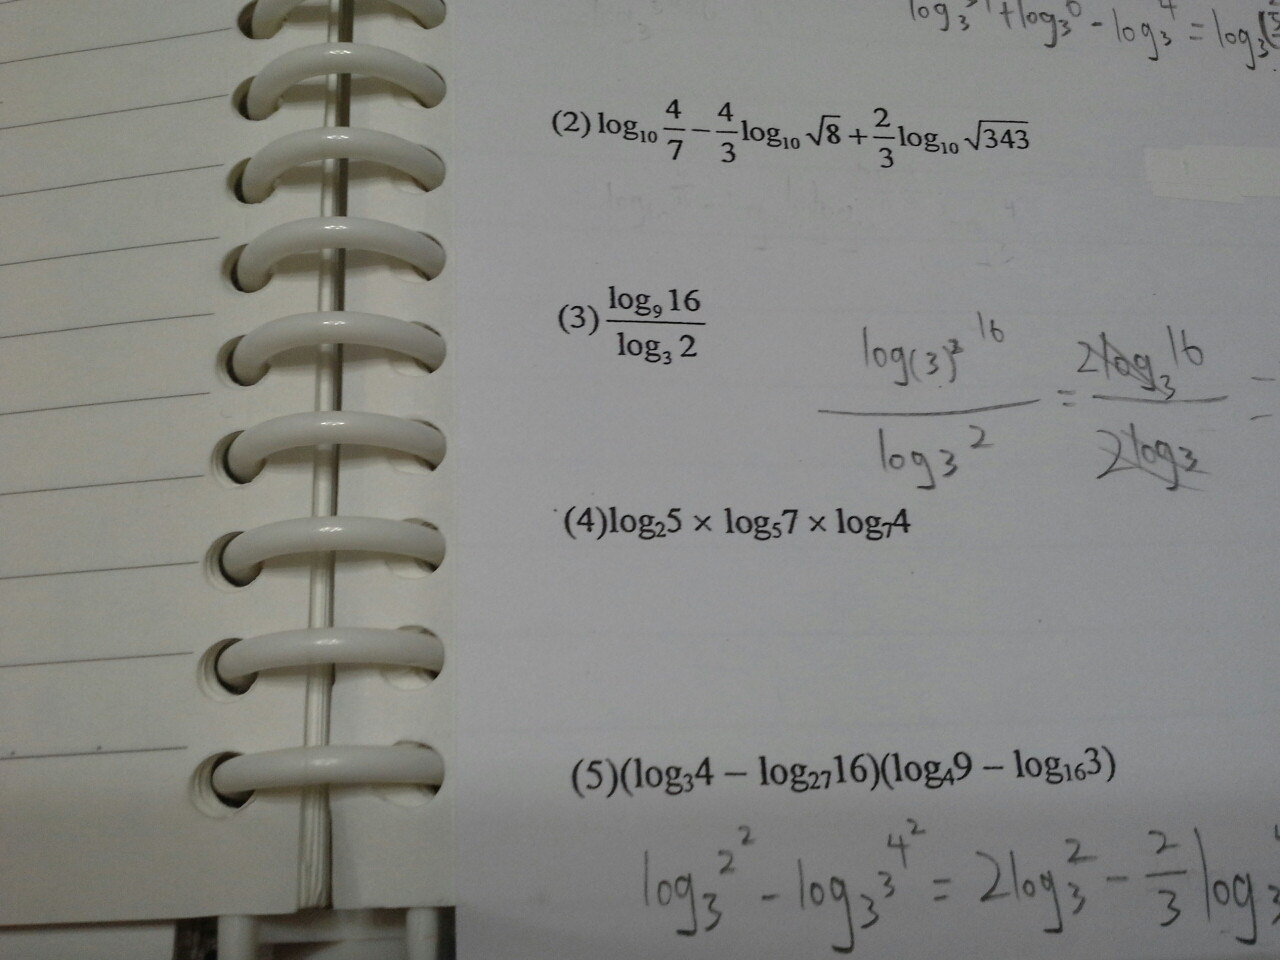 log₃ + log₃ - log₃⁴ = log₃
(2) log₁₀ 4/7 − 4/3 log₁₀ √8 + 2/3 log₁₀ √343
(3) log₉ 16 / log₃ 2
log(3)² 16 / log₃ 2 = 2log₃ 16 / 2log₃ =
(4)log₂5 × log₅7 × log₇4
(5)(log₃4 − log₂₇16)(log₄9 − log₁₆3)
log₃ 2² - log₃³ 4² = 2log₃ 2 - 2/3 log₃